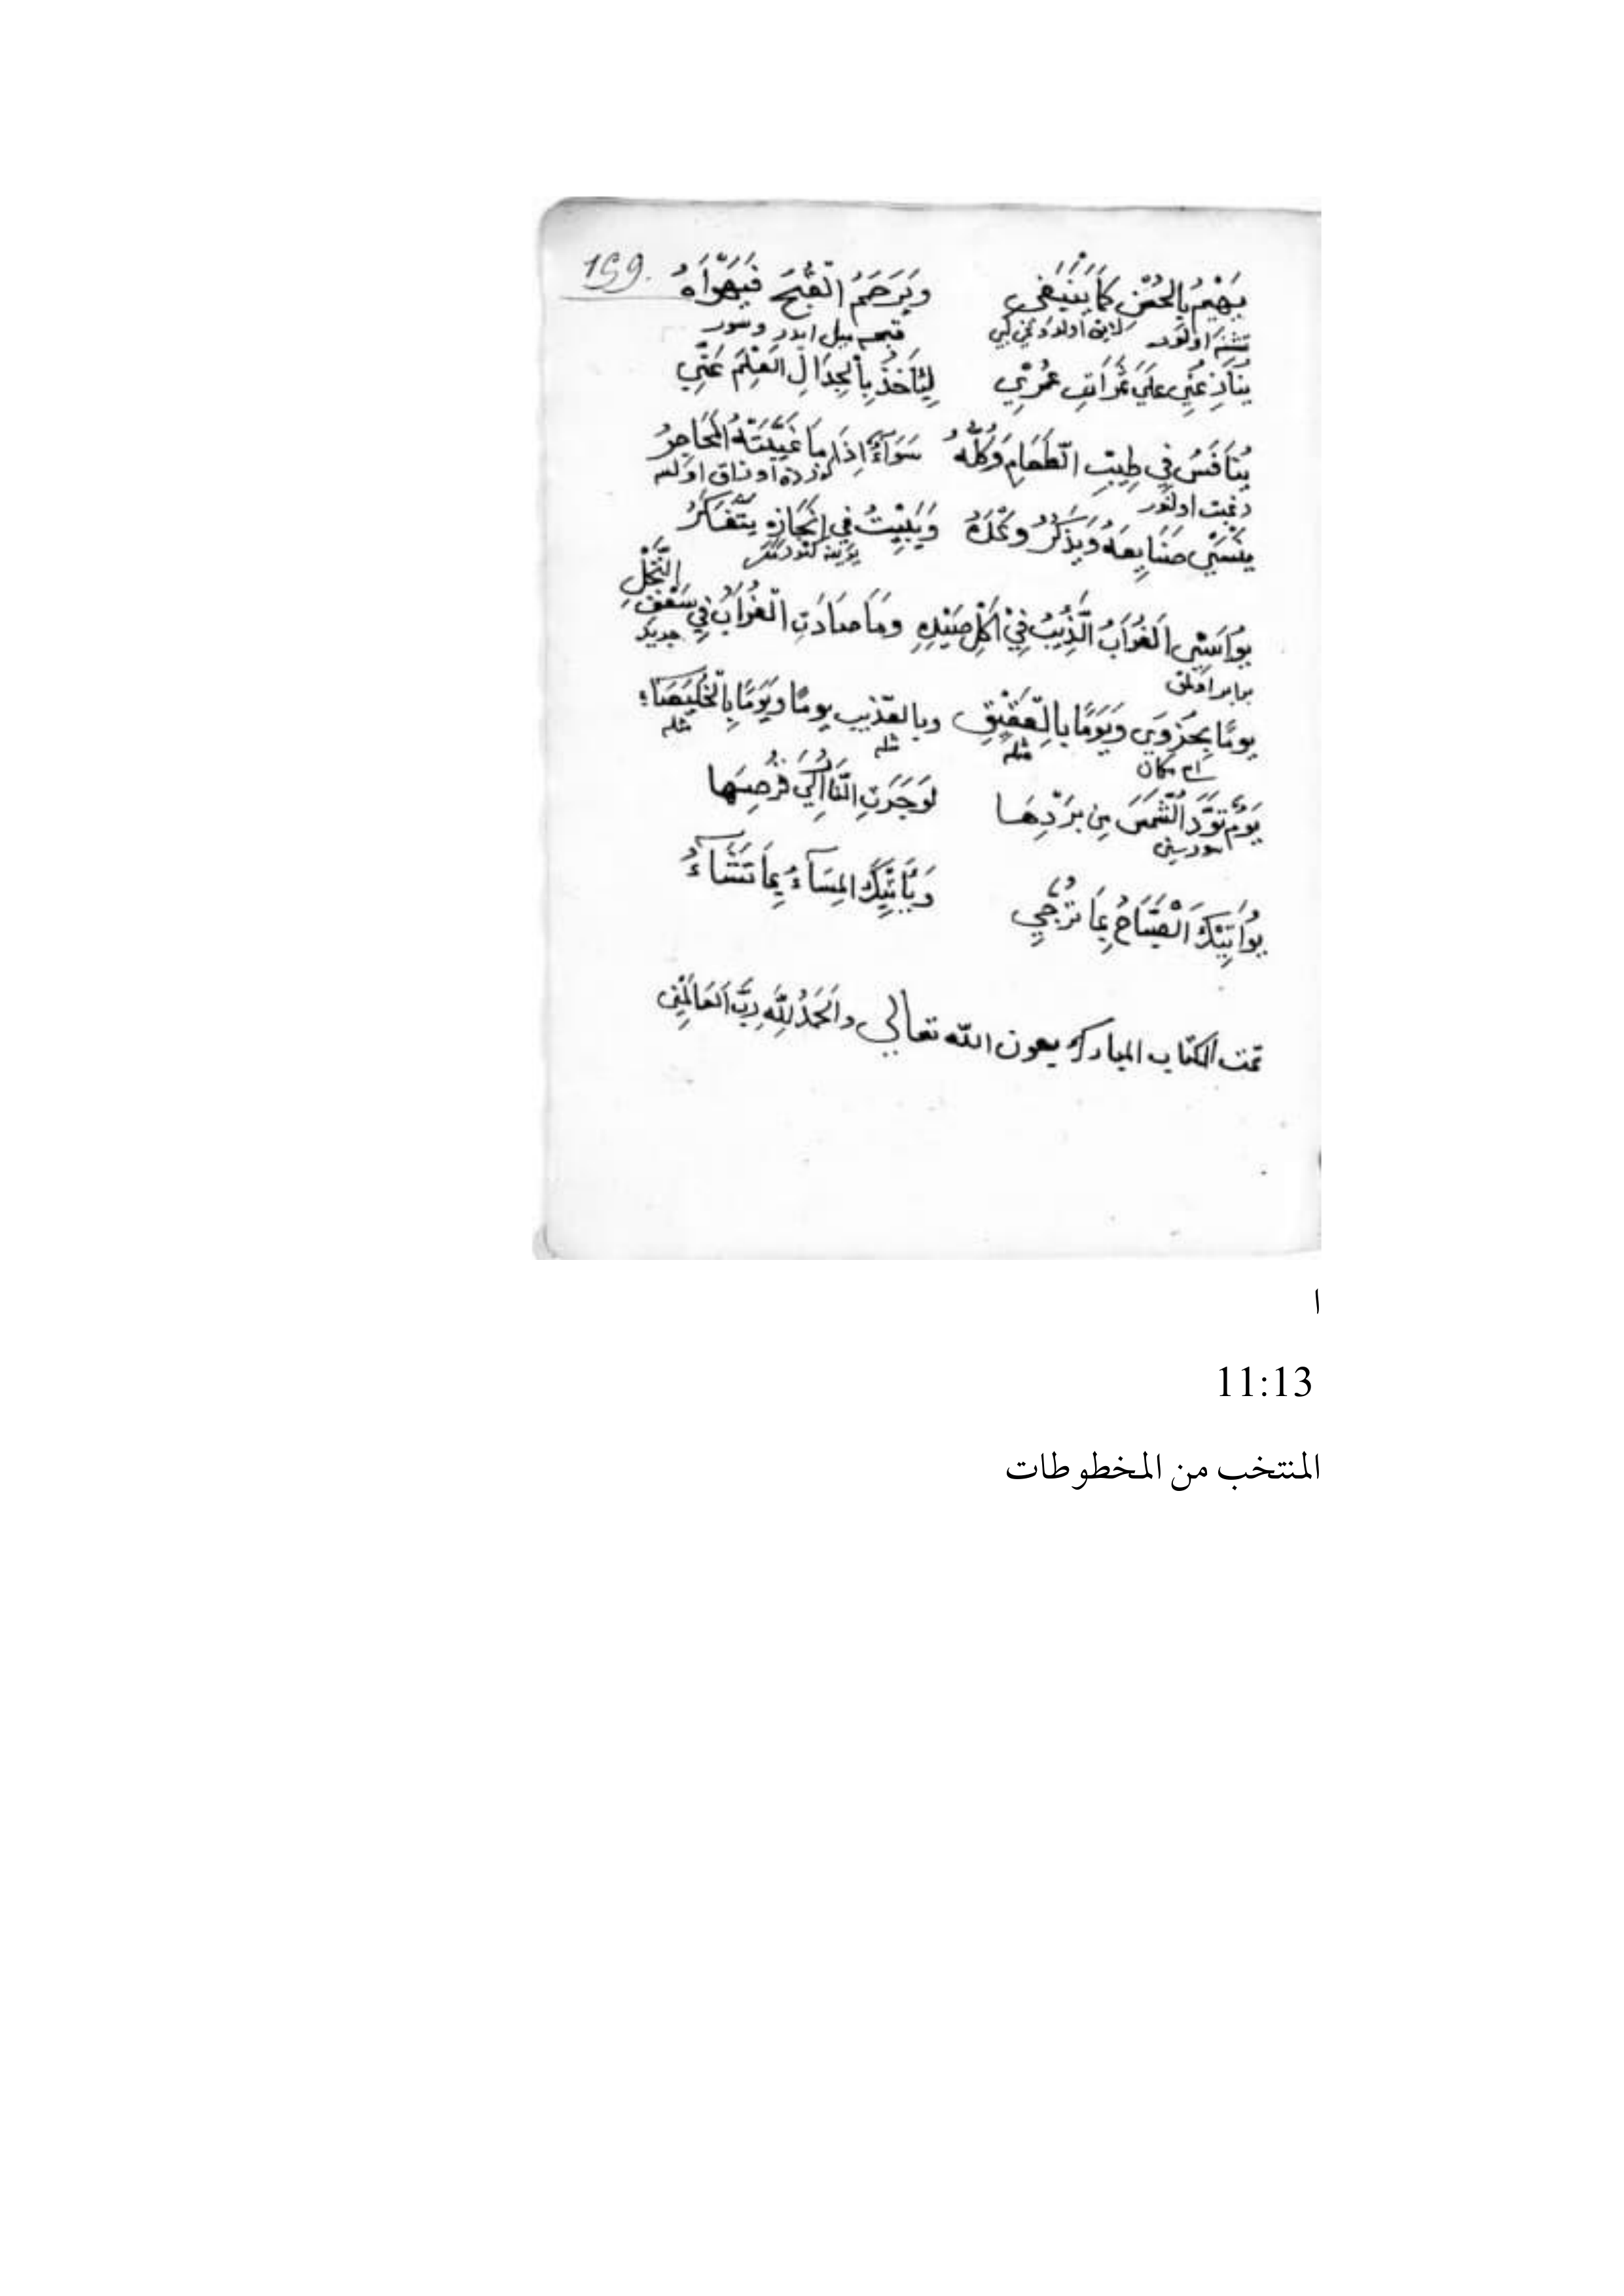 159.
يَهْيِمُ بِالْحُسْنِ كَمَا يَنْبَغِى وَيَرْحَمُ الْقُبْحَ فَيَهْوَاهُ
قبحه ميل ايدر وسور
يُنَازِعُنِى عَلَى ثَمَرَاتِ عُمْرِي لِيَأْخُذَ بِالْجِدَالِ الْعِلْمَ عَنِّي
يُنَافَسُ فِي طِيبِ الطَّعَامِ وَكُلُّهُ سَوَاءٌ اِذَا مَا غَيَّبَتْهُ الْمَحَاجِرُ
رغبت اولنور
يَنْسَيْ صَنَايِعَهُ وَيَذْكُرُ وَعْدَهُ وَيَبِيْتُ فِي اِنْجَازِهِ يَتَفَكَّرُ
يُوَاسِى الْغُرَابُ الذِّيْبُ فِيْ اَكْلِ صَيْدِهِ وَمَا صَادَتِ الْغُرَابُ فِي سَعَفِ النَّخْلِ
جريد
برابر اولمق
يَومًا بِحُزْوَى وَيَوْمًا بِالْعَقِيْقِ وبالعذيب يومًا وَيَوْمًا بِالْخُلَيْصَاءِ
مثله مثله مثله
اسم مكان
يَوْمٌ تَوَدُّ الشَّمْسَ مِن بَرْدِهَا لَوْ جَرَتِ النَّارُ اِلَى قُرْصِهَا
يُوَاتِيْكَ الْصَّبَاحُ بِمَا تُرَجِّي وَيَأْتِيْكَ الْمِسَآءُ بِمَا تَشَآءُ
تمت الكتاب المباركه بعون الله تعالي والْحَمْدُ لِلّهِ رَبِّ الْعَالَمِيْنَ
ا
11:13
المنتخب من المخطوطات